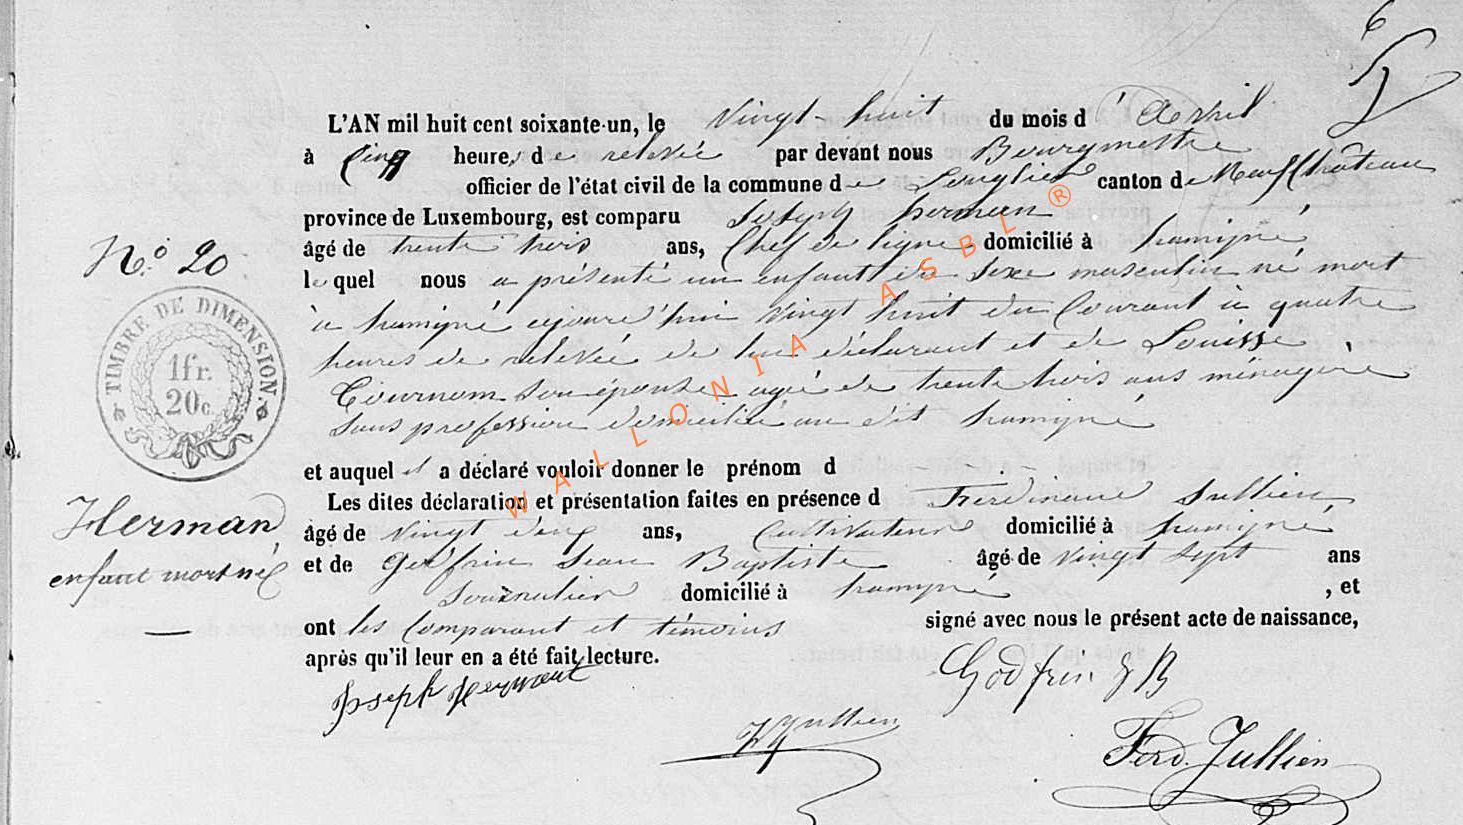 6
L'AN mil huit cent soixante-un, le vingt-huit du mois d'avril
à cinq heures de relevée par devant nous Bourgmestre
officier de l'état civil de la commune de Longlier canton de Neufchâteau
province de Luxembourg, est comparu Joseph herman
âgé de trente trois ans, Chef de ligne domicilié à hamipré
lequel nous a présenté un enfant du sexe masculin né mort
à hamipré aujourd'hui vingt huit du Courant à quatre
heures de relevée de lui déclarant et de Louisse
son épouse agée de trente trois ans ménagère
sans profession domiciliée au dit hamipré
et auquel il a déclaré vouloir donner le prénom d - -
Les dites déclaration et présentation faites en présence d Ferdinand Jullien
âgé de vingt deux ans, Cultivateur domicilié à hamipré
et de Godfrin Jean Baptiste âgé de vingt sept ans
Journalier domicilié à hamipré, et
ont les Comparant et témoins signé avec nous le présent acte de naissance,
après qu'il leur en a été fait lecture.
Joseph Hermant
Godfrin J B
Jullien
Ferd. Jullien
N.º 20
TIMBRE DE DIMENSION.
1fr.
20c.
Herman
enfant mort né
WALLONIA ASBL ®